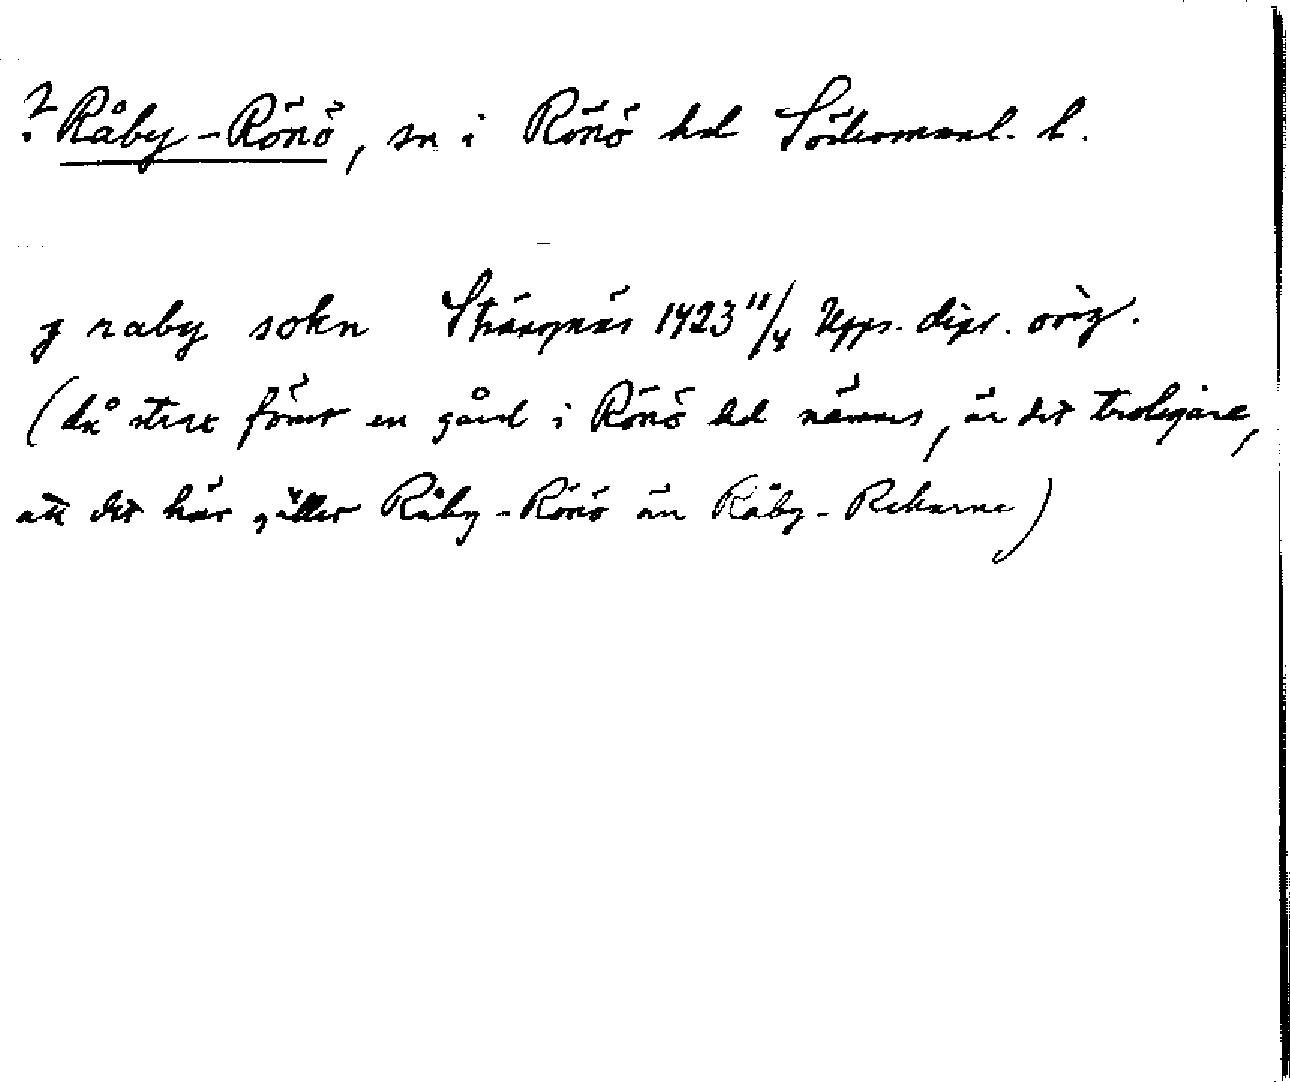 ? Råby-Rönö, sn i Rönö hd Södermanl. l.
j raby sokn Strängnäs 1423 11/4 Upps. dipl. orig.
(då strax förut en gård i Rönö hd nämnes, är det troligare,
att det här gäller Råby-Rönö än Råby-Rekarne)